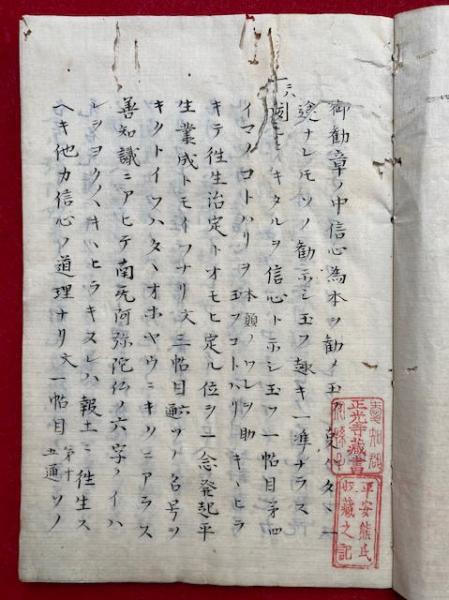 御勸章ノ中信心為本ヲ勸メ玉フ
途ナレモソノ勸示シ玉フ趣キ一準ナラス
キタルヲ信心ト示シ玉フ一帖目第四
イマノコトハリヲ本願ノワレヲ助キヽヒラ
玉フコトハリ
キテ往生治定トオモヒ定ル位ヲ一念發起平
生業成トモイフナリ文三帖目六ツノ名号ヲ
キクトイフハタヽオホヤウニキクニアラス
善知識ニアヒテ南无阿弥陀仏ノ六字ノイハ
レヲヨクノ キヽヒラキヌレハ報土ニ往生ス
ヘキ他力信心ノ道理ナリ文一帖目第十五通ソノ
正光寺藏書
平安熊氏
收藏之記